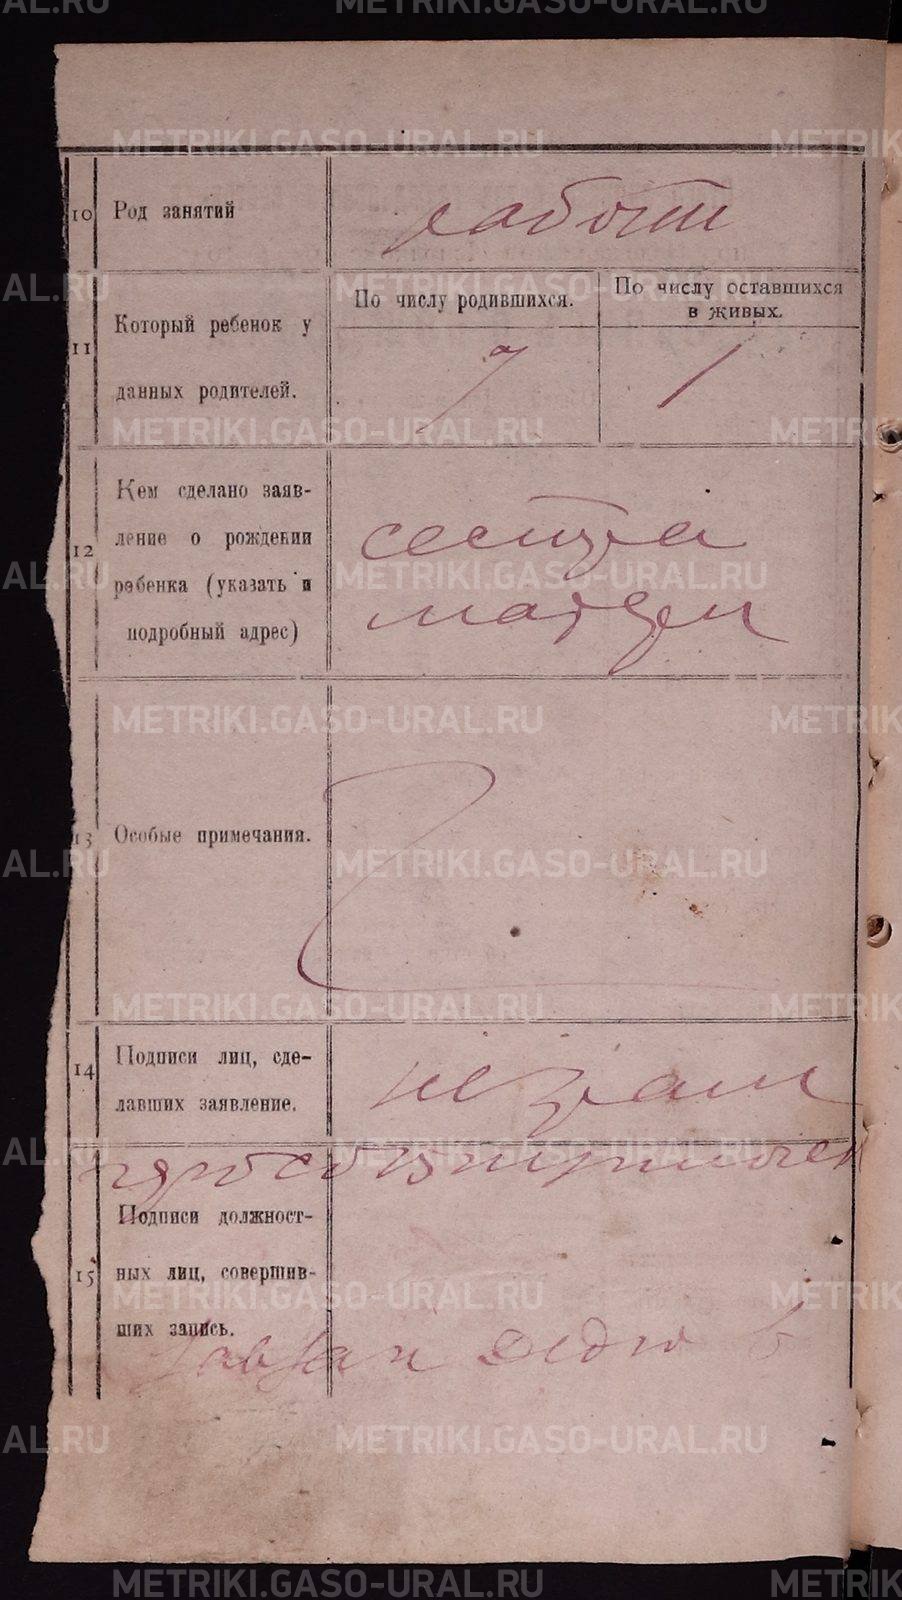 10 Род занятий
работн
11 Который ребенок у
данных родителей.
По числу родившихся.
По числу оставшихся
в живых.
7
1
12 Кем сделано заяв-
ление о рождении
ребенка (указать и
подробный адрес)
сестра
матери
13 Особые примечания.
14 Подписи лиц, сде-
лавших заявление.
15 Подписи должност-
ных лиц, совершив-
ших запись.
METRIKI.GASO-URAL.RU